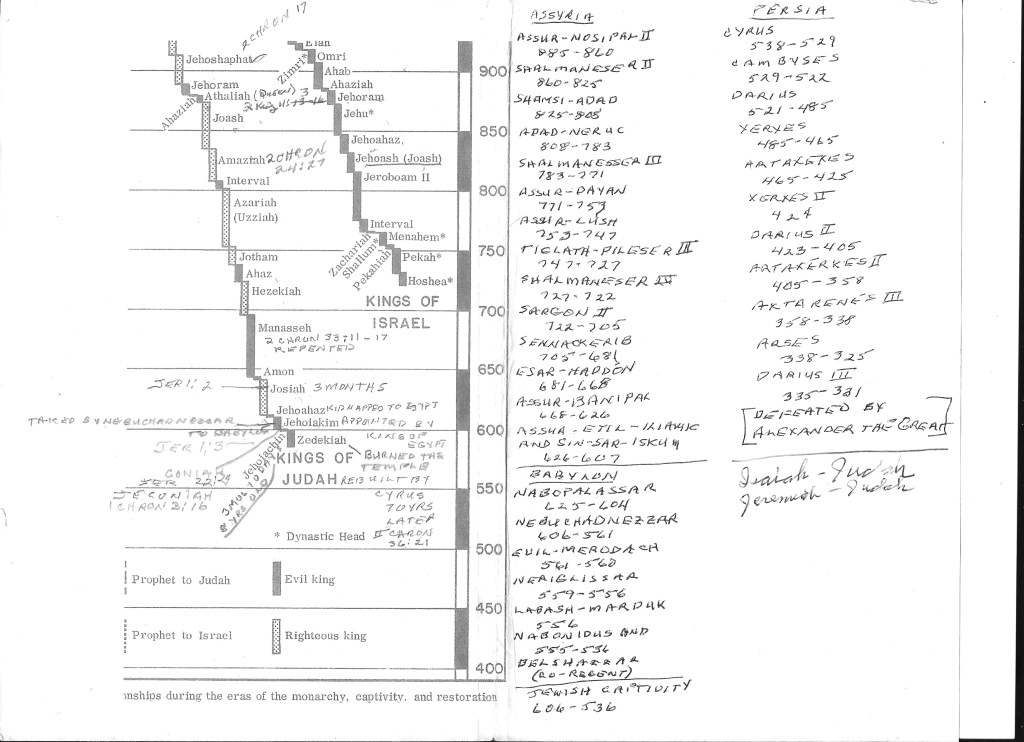 2 CHRON 17
Elah
Jehoshaphat
Zimri*
Omri
900
Ahab
Jehoram
Ahaziah
Ahaziah
Athaliah (QUEEN)
Jehoram
Joash
Jehu*
850
Jehoahaz
Amaziah 2CHRON
24:27
Jehoash (Joash)
Interval
Jeroboam II
800
Azariah
(Uzziah)
Interval
Zachariah
Shallum*
Menahem*
750
Jotham
Pekahiah
Pekah*
Ahaz
Hoshea*
Hezekiah
KINGS OF
ISRAEL
700
Manasseh
2 CHRON 33:11-17
REPENTED
650
Amon
JER 1:2
Josiah 3 MONTHS
Jehoahaz KIDNAPPED TO EGYPT
TAKED BY NEBUCHADNEZZAR
TO BABYLON
Jehoiakim APPOINTED BY
KING OF
EGYPT
600
JER 1:3
Jehoiachin
Zedekiah
BURNED THE
TEMPLE
CONIAH
JER 22:24
KINGS OF
JUDAH REBUILT BY
CYRUS
70 YRS
LATER
II CHRON
36:21
JECONIAH
1 CHRON 3:16
8 YRS OLD
550
* Dynastic Head
500
Prophet to Judah
Evil king
450
Prophet to Israel
Righteous king
400
onships during the eras of the monarchy, captivity, and restoration
ASSYRIA
ASSUR-NOSIPAL II
885-860
SHALMANESER II
860-825
SHAMSI-ADAD
825-808
ADAD-NERUC
808-783
SHALMANESSER III
783-771
ASSUR-DAYAN
771-753
ASSUR-LUSH
753-747
TIGLATH-PILESER III
747-727
SHALMANESER IV
727-722
SARGON II
722-705
SENNACKERIB
705-681
ESAR-HADDON
681-668
ASSUR-BANIPAL
668-626
ASSUR-ETIL-
AND SIN-SAR-ISKUM
626-607
BABYLON
NABOPALASSAR
625-604
NEBUCHADNEZZAR
606-561
EVIL-MERODACH
561-560
NERIGLISSAR
559-556
LABASH-MARDUK
556
NABONIDUS AND
555-536
BELSHAZZAR
(CO-REGENT)
JEWISH CAPTIVITY
606-536
PERSIA
CYRUS
538-529
CAMBYSES
529-522
DARIUS
521-485
XERXES
485-465
ARTAXEXES
465-425
XERXES II
424
DARIUS II
423-405
ARTAXERKES II
405-358
AXTARENES III
358-338
ARSES
338-325
DARIUS III
335-331
DEFEATED BY
ALEXANDER THE GREAT
Isaiah - Judah
Jeremiah - Judah